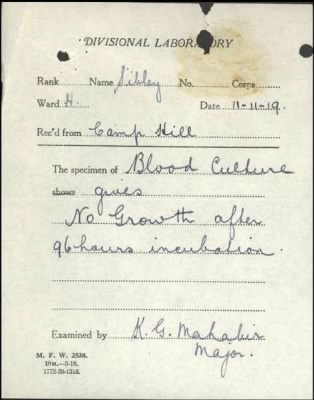 DIVISIONAL LABORATORY
Rank Name Sibley No. Corps
Ward H. Date 11-11-19.
Rec'd from Camp Hill
The specimen of Blood Culture
shows gives
No Growth after
96 hours incubation.
Examined by K. G. Mahabir
Major.
M. F. W. 2538.
10M.—5-18.
1772-39-1315.